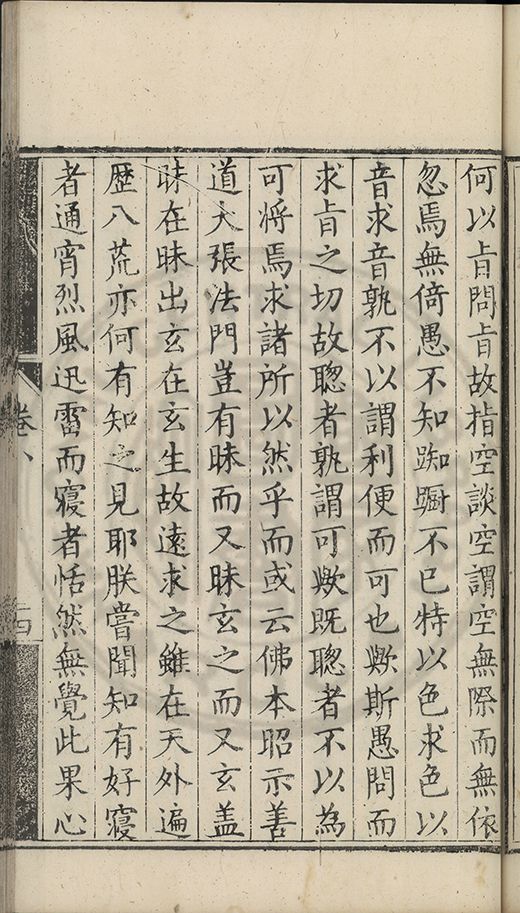 何以旨問旨故指空談空謂空無際而無依
忽焉無倚愚不知踟蹰不已特以色求色以
音求音孰不以謂利便而可也歟斯愚問而
求旨之切故聰者孰謂可歟既聰者不以為
可將焉求諸所以然乎而或云佛本昭示善
道大張法門豈有昧而又昧玄之而又玄盖
昧在昧出玄在玄生故遠求之雖在天外遍
歷八荒亦何有知之見耶朕嘗聞知有好寢
者通宵烈風迅雷而寢者恬然無覺此果心
卷八